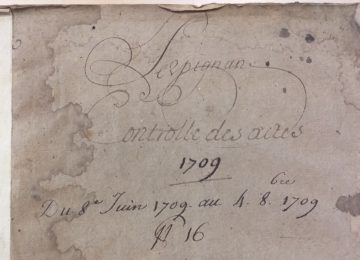 Perpignan
Controlle des actes
1709
Du 8e Juin 1709 au 4. 8.bre 1709
N 16